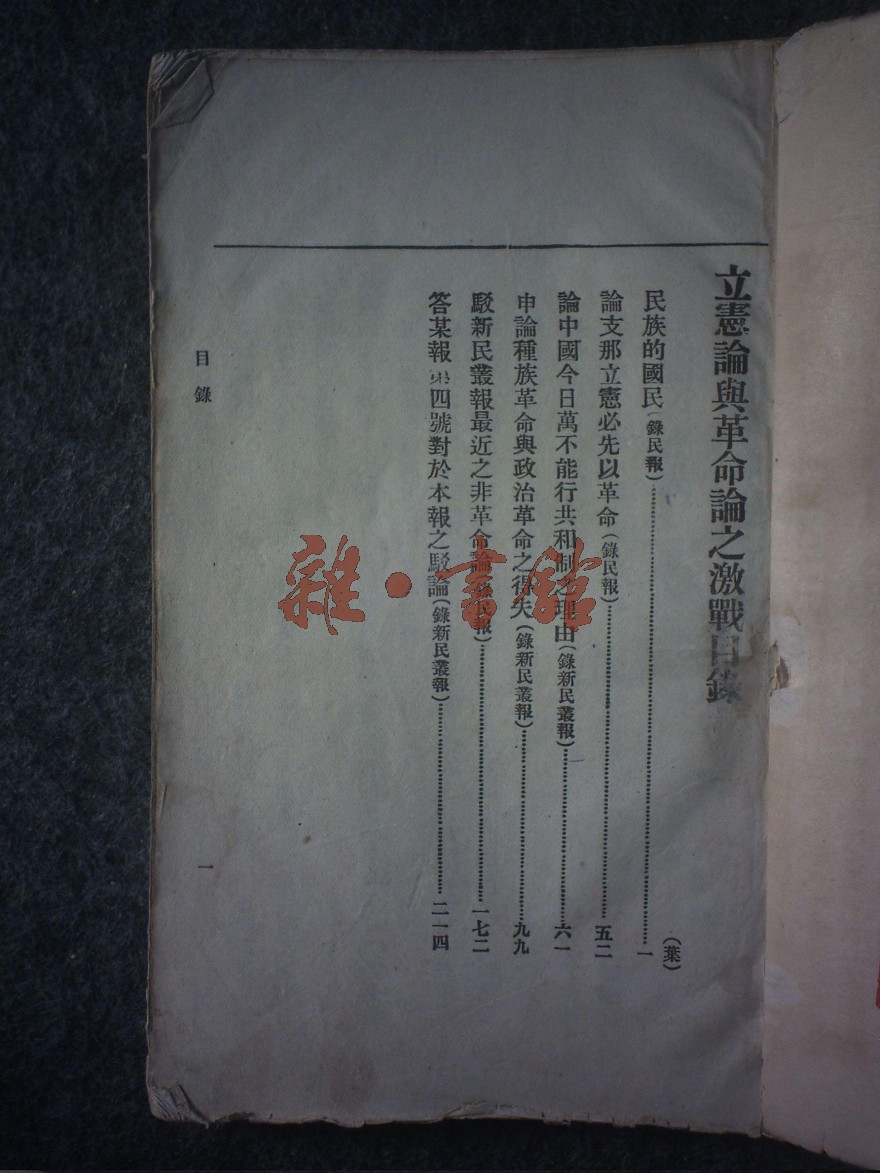 立憲論與革命論之激戰目錄
(葉)
民族的國民(錄民報)……一
論支那立憲必先以革命(錄民報)……五二
論中國今日萬不能行共和制之理由(錄新民叢報)……六一
申論種族革命與政治革命之得失(錄新民叢報)……九九
駁新民叢報最近之非革命論(錄民報)……一七二
答某報第四號對於本報之駁論(錄新民叢報)……二一四
目錄
一
雜·書館